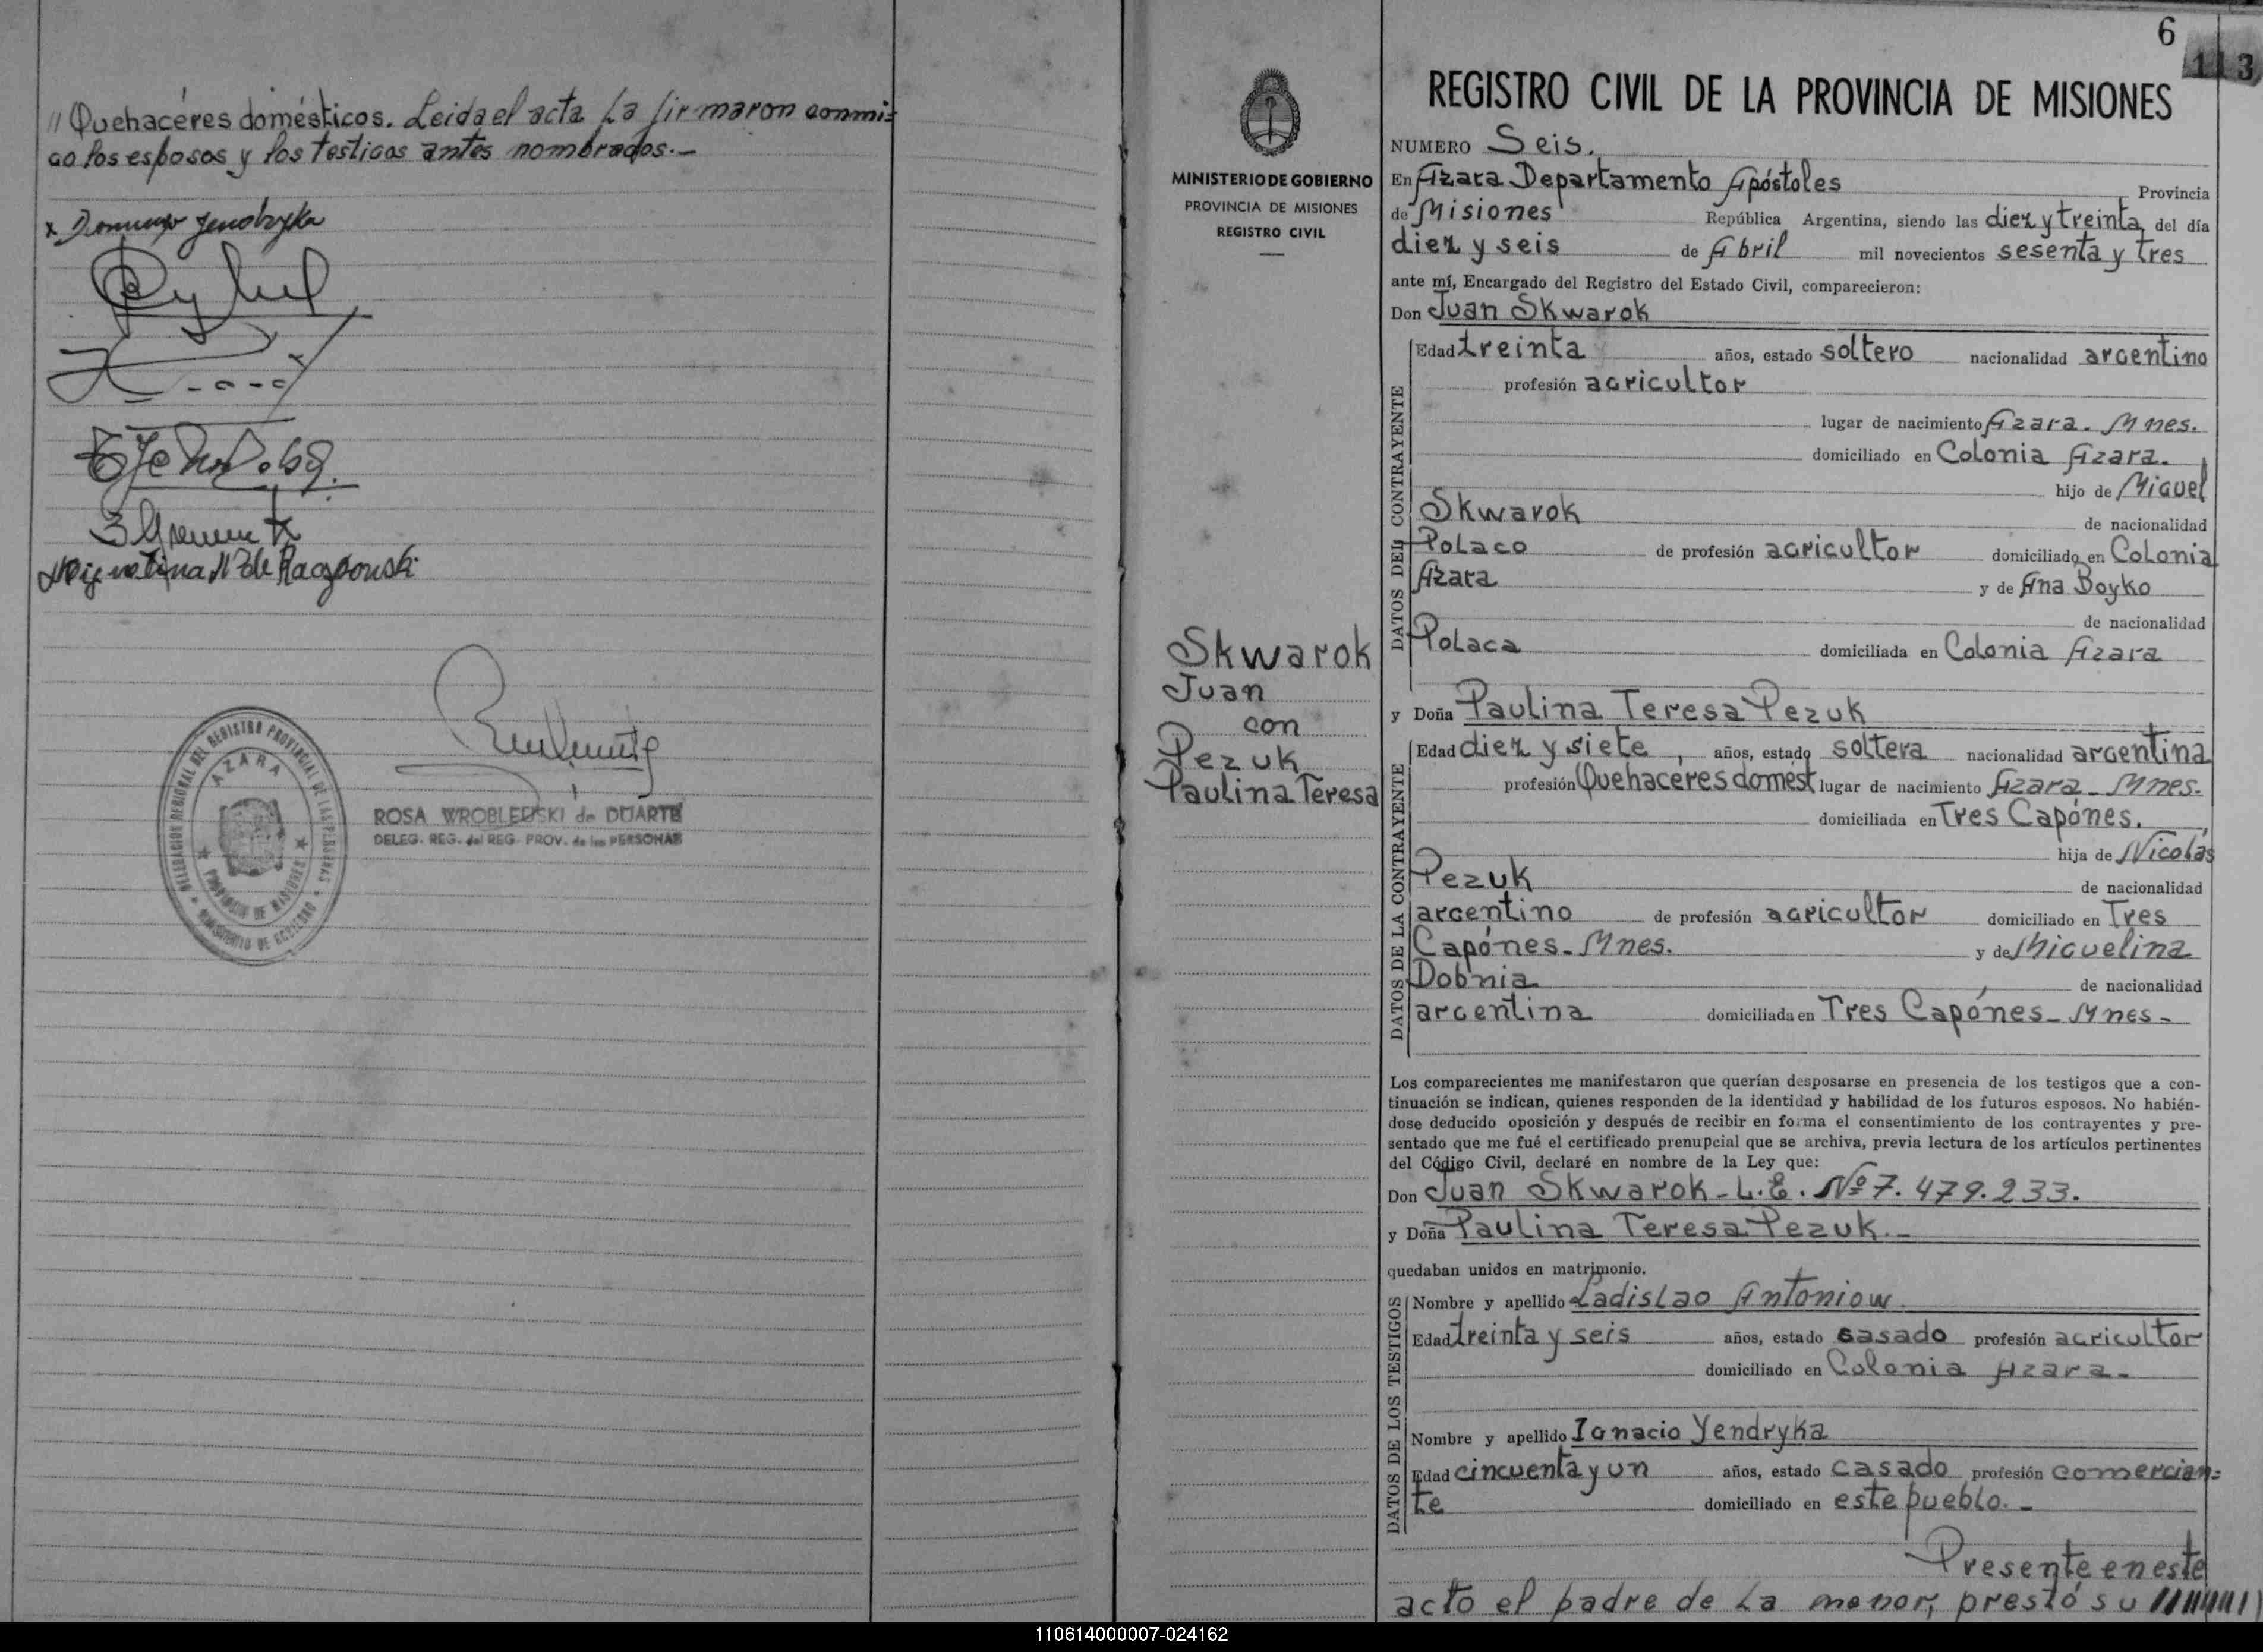 // Quehacéres domésticos. Leida el acta la firmaron conmi=
go los esposos y los testigos antes nombrados.—
ROSA WROBLEUSKI de DUARTE
DELEG. REG. del REG. PROV. de las PERSONAS
DELEGACION REGIONAL DEL REGISTRO PROVINCIAL DE LAS PERSONAS
AZARA
PROVINCIA DE MISIONES
MINISTERIO DE GOBIERNO
MINISTERIO DE GOBIERNO
PROVINCIA DE MISIONES
REGISTRO CIVIL
Skwarok
Juan
con
Pezuk
Paulina Teresa
6
113
REGISTRO CIVIL DE LA PROVINCIA DE MISIONES
NUMERO Seis.
En Azara Departamento Apóstoles Provincia
de Misiones República Argentina, siendo las diez y treinta del día
diez y seis de Abril mil novecientos sesenta y tres
ante mí, Encargado del Registro del Estado Civil, comparecieron:
Don Juan Skwarok
DATOS DEL CONTRAYENTE
Edad treinta años, estado soltero nacionalidad argentino
profesión agricultor
lugar de nacimiento Azara. Mnes.
domiciliado en Colonia Azara.
hijo de Miguel
Skwarok de nacionalidad
Polaco de profesión agricultor domiciliado en Colonia
Azara y de Ana Boyko
de nacionalidad
Polaca domiciliada en Colonia Azara
y Doña Paulina Teresa Pezuk
DATOS DE LA CONTRAYENTE
Edad diez y siete, años, estado soltera nacionalidad argentina
profesión Quehacéres domést lugar de nacimiento Azara_Mnes.
domiciliada en Tres Capónes.
hija de Nicolás
Pezuk de nacionalidad
argentino de profesión agricultor domiciliado en Tres
Capónes_Mnes. y de Miguelina
Dobnia de nacionalidad
argentina domiciliada en Tres Capónes_Mnes_
Los comparecientes me manifestaron que querían desposarse en presencia de los testigos que a con-
tinuación se indican, quienes responden de la identidad y habilidad de los futuros esposos. No habién-
dose deducido oposición y después de recibir en forma el consentimiento de los contrayentes y pre-
sentado que me fué el certificado prenupcial que se archiva, previa lectura de los artículos pertinentes
del Código Civil, declaré en nombre de la Ley que:
Don Juan Skwarok_L.E. Nº 7.479.233.
y Doña Paulina Teresa Pezuk._
quedaban unidos en matrimonio.
DATOS DE LOS TESTIGOS
Nombre y apellido Ladislao Antoniow
Edad treinta y seis años, estado casado profesión agricultor
domiciliado en Colonia Azara_
Nombre y apellido Ignacio Yendryka
Edad cincuenta y un años, estado casado profesión comercian=
te domiciliado en este pueblo._
Presente en este
acto el padre de la menor, prestó su
110614000007-024162